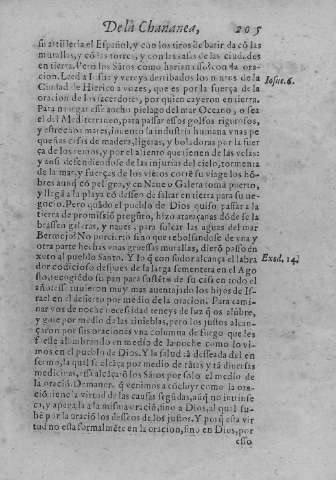 De la Chananea, 205
su artilleria el Español, y con los tiros de batir da cõ las
murallas, y cõ las torres, y con las casas de las ciudades
en tierra. Pero los Sãtos como harian esso? con la ora-
cion. Leed a Iosue y vereys derribados los muros de la
Ciudad de Hierico a vozes, que es por la fuerça de la
oracion de los sacerdotes, por quien cayeron en tierra.
Iosue. 6.
Para nauegar esse ancho pielago del mar Oceano, o sea
el del Mediterraneo, para passar essos golfos rigurosos,
y estrechos mares, inuento la industria humana vnas pe
queñas casas de madera, ligeras, y boladoras por la fuer
ça de los remos, y por el aliento que tienen de las velas:
y assi defendiendose de las injurias del cielo, tormenta
de la mar, y fuerças de los vientos corre su viage los hõ-
bres aunq̃ cõ peligro, y en Naue o Galera toma puerto,
y llegã a la playa cõ desseo de saltar en tierra para su ne-
gocio. Pero quãdo el pueblo de Dios quiso passar a la
tierra de promissiõ pregũto, hizo ataraçanas dõde se la
brassen galeras, y naues, para sulcar las aguas del mar
Bermejo? No por cierto sino que rebolsandose de vna y
otra parte hechas vnas gruessas murallas, dierõ passo en
xuto al pueblo Santo. Y lo q̃ con sudor alcança el labra
Exod. 14.
dor codicioso despues de la larga sementera en el Ago
sto, recogiẽdo su pan para sustẽto de su casa en todo el
año: esso tuuieron muy mas auentajado los hijos de Is-
rael en el desierto por medio de la oracion. Para cami-
nar vos de noche necessidad teneys de luz q̃ os alũbre,
y guie por medio de las tinieblas, pero los justos alcan-
çaron por sus oraciones vna columna de fuego que les
fuesse alumbrando en medio de la noche como lo vi-
mos en el pueblo de Dios. Y la salud tã desseada del en
fermo, la qual se alcãça por medio de tãtas y tã diuersas
medicinas, essa alcãçarõ los Sãtos por solo el medio de
la oraciõ. De maner. q̃ venimos a cõcluyr como la ora
ciõ tiene la virtud de las causas segũdas, aũq̃ no intrinse
ca, y apegada a la misma oraciõ, sino a Dios, al qual su-
be por la oraciõ los desseos de los justos. Y porq̃ esta vir
tud no esta formalmẽte en la oracion, sino en Dios, por
esso